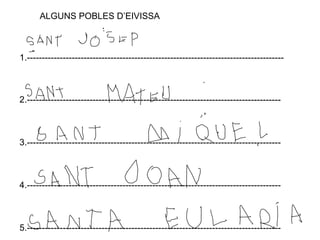 ALGUNS POBLES D'EIVISSA
1. SANT JOSEP
2. SANT MATEU
3. SANT MIQUEL
4. SANT JOAN
5. SANTA EULARIA